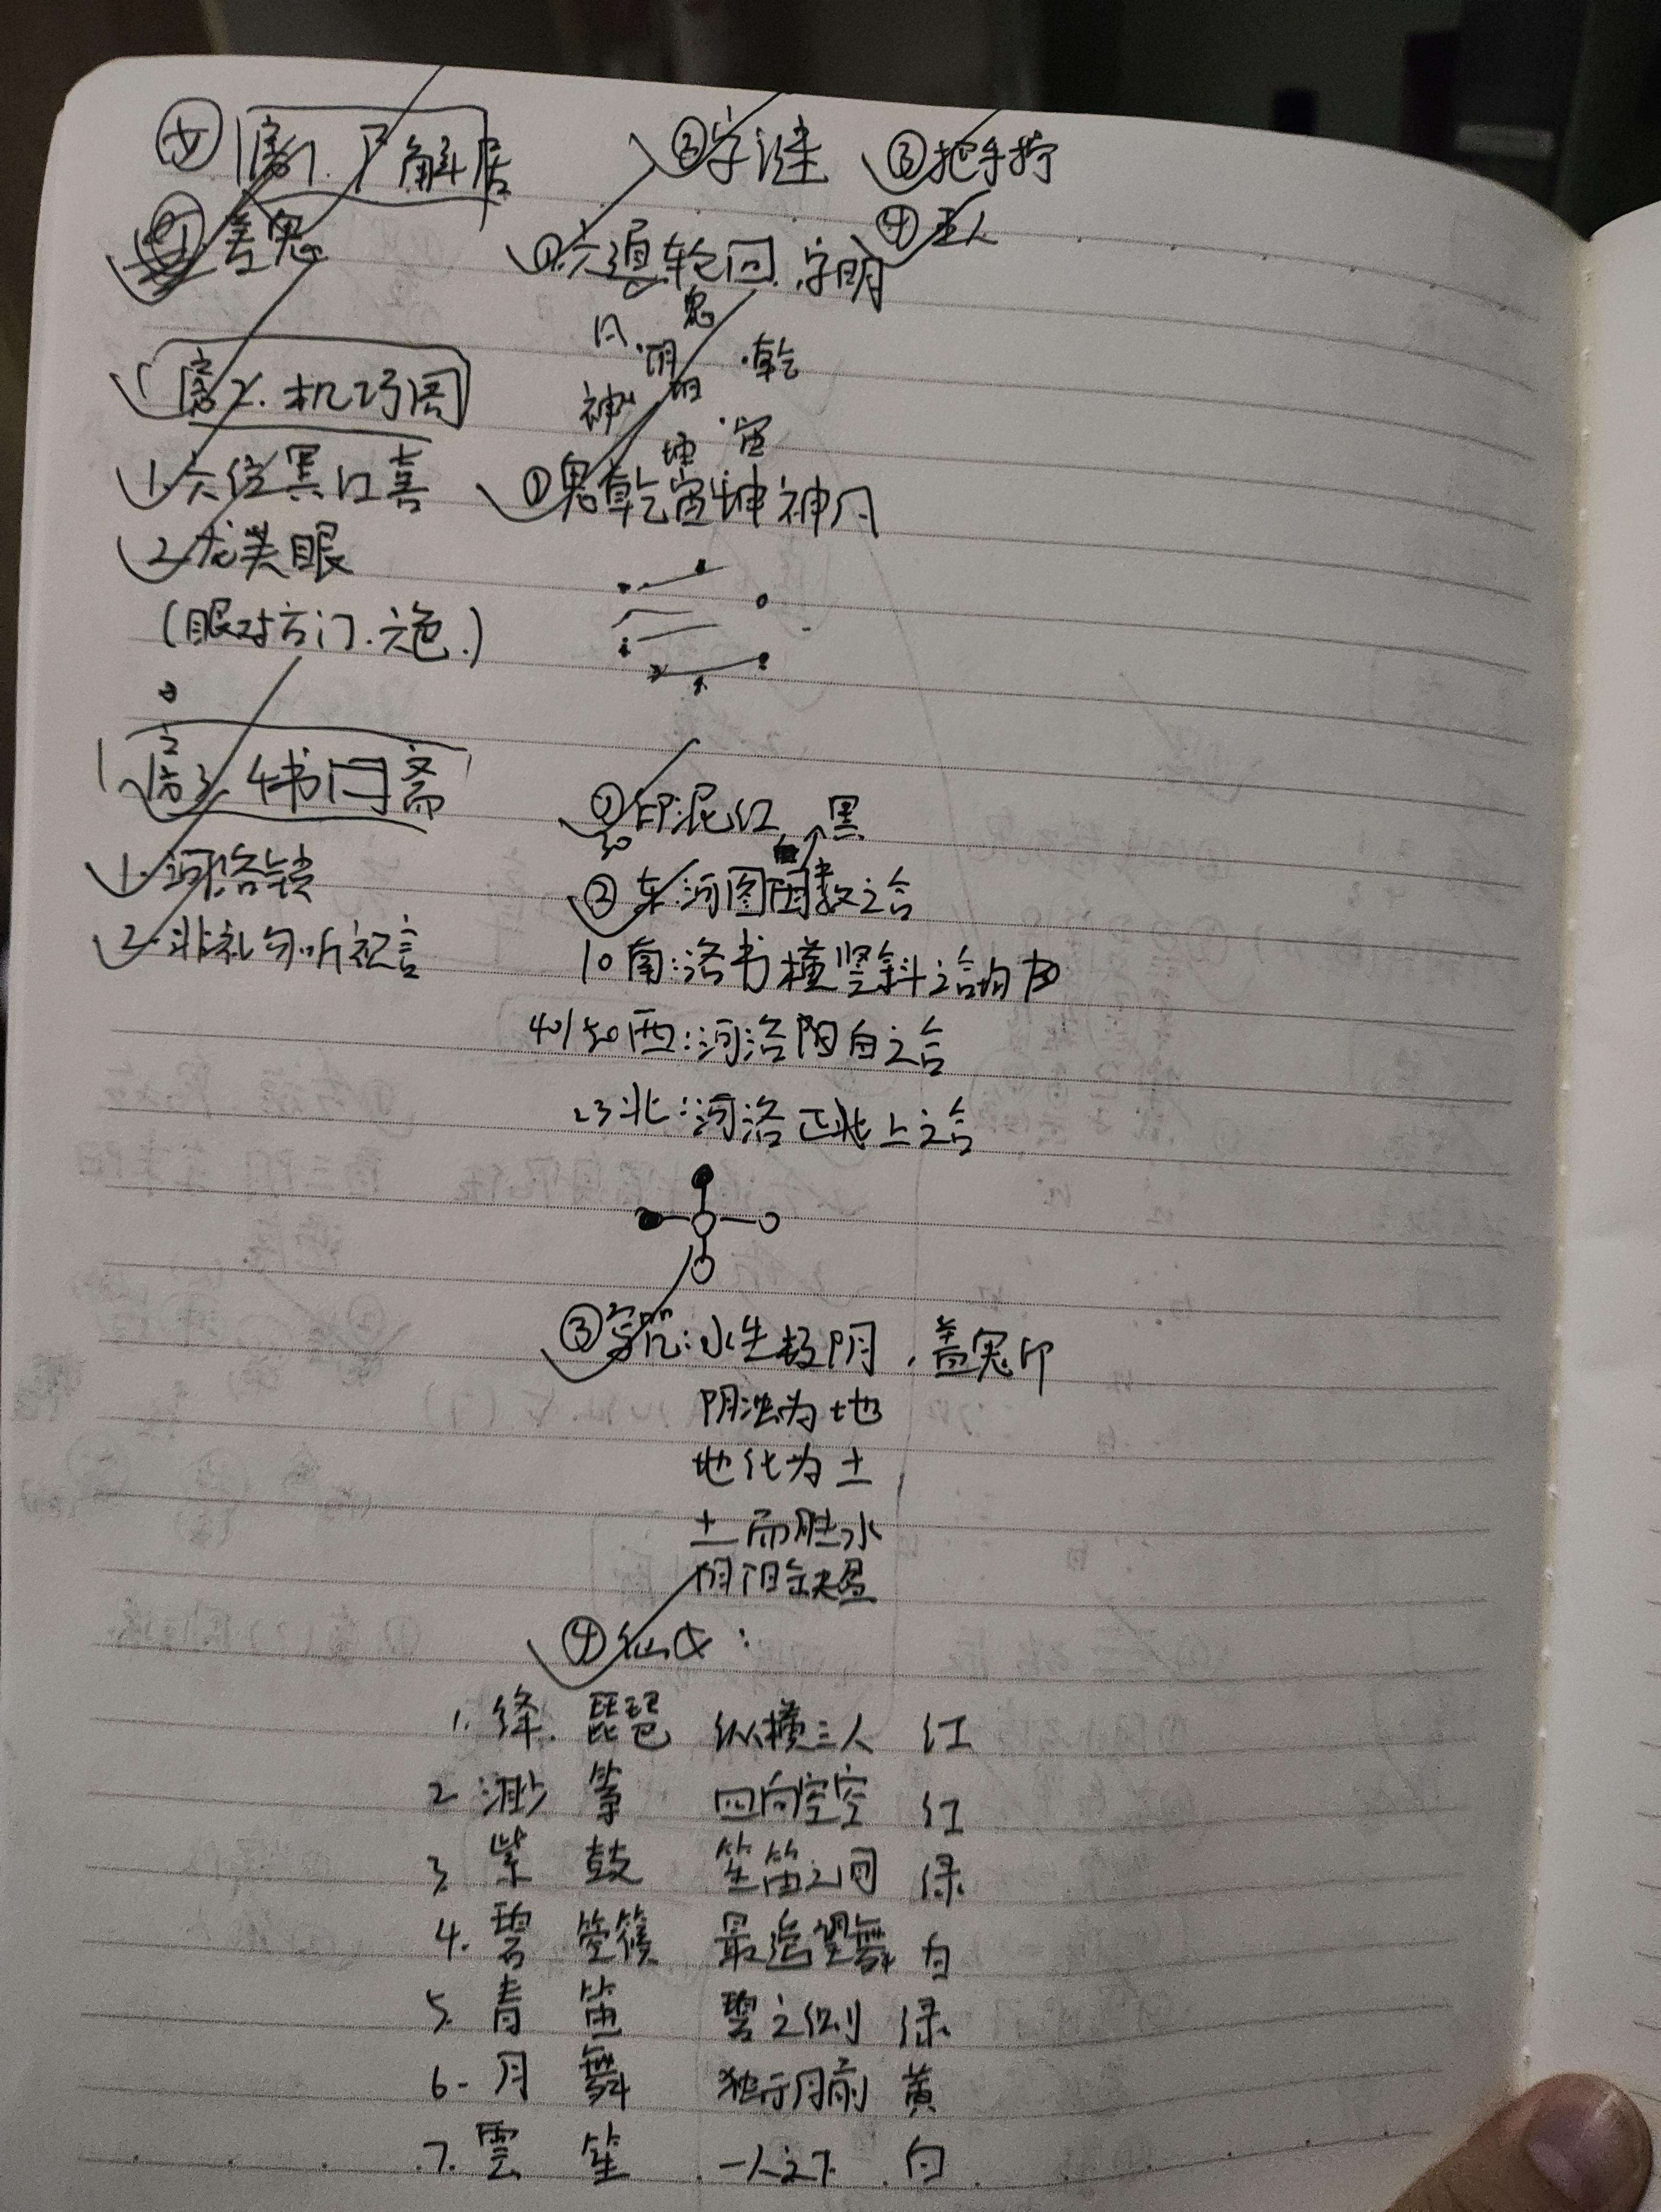 房1. 了解居
② 字谜 ③ 把手拧
④ 五人
盖鬼
① 六道轮回. 字明
鬼
月. 阴 . 乾
神 阳
. 宙
坤
房2. 机巧阁
1. 六位黑口喜
① 鬼乾宙坤神月
2. 龙头眼
(眼对方门. 六色.)
房3. 4书闩斋
② 印泥红 黑
30
1. 河洛锁
② 东:河图 数之合
2. 非礼勿听视言
10 南:洛书横竖斜之合均为
40/50 西:河洛阳白之合
23 北:河洛正北上之合
③ 字咒:水生极阴, 盖冤印
阴浊为地
地化为土
土而胜水
阴阳缺盈
④ 仙女:
1. 绛. 琵琶 纵横三人 红
2 渺 筝 四向空空 红
3. 紫 鼓 笙笛之间 绿
4. 碧 箜篌 最远望舞 白
5. 青 笛 碧之侧 绿
6. 月 舞 独行月前 黄
7. 雲 笙 一人之下. 白